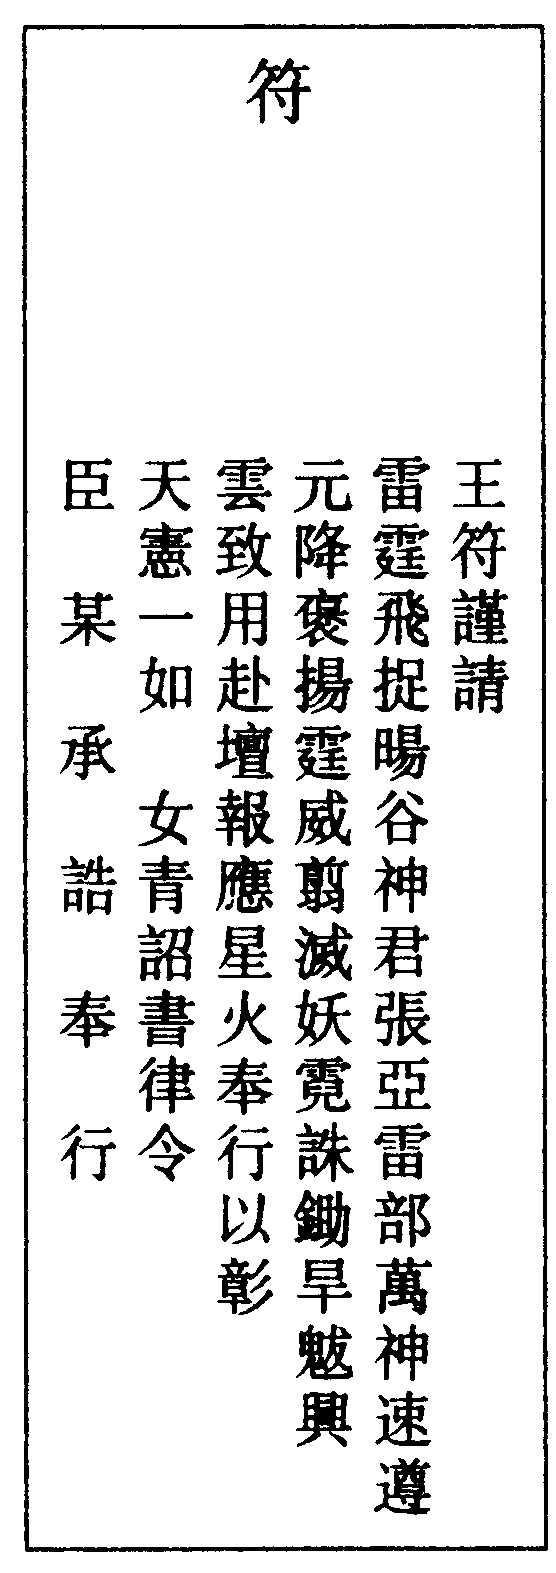 符
王符謹請
雷霆飛捉暘谷神君張亞雷部萬神速遵
元降褒揚霆威翦滅妖霓誅鋤旱魃興
雲致用赴壇報應星火奉行以彰
天憲一如　女青詔書律令
臣某承誥奉行